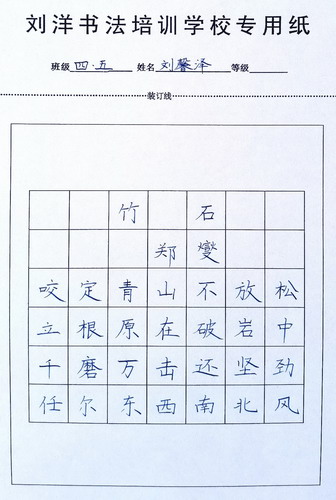 刘洋书法培训学校专用纸
班级 四·五 姓名 刘馨泽 等级
装订线
竹 石
郑 燮
咬 定 青 山 不 放 松
立 根 原 在 破 岩 中
千 磨 万 击 还 坚 劲
任 尔 东 西 南 北 风